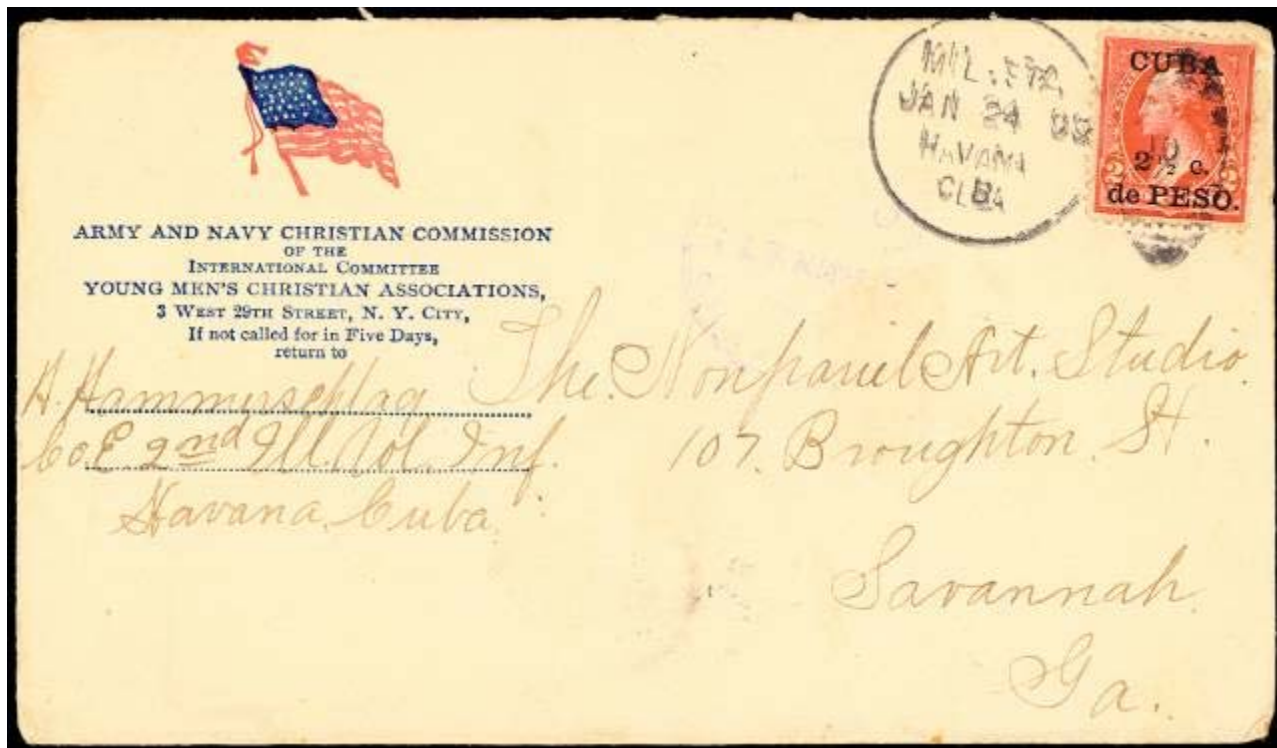 ARMY AND NAVY CHRISTIAN COMMISSION
OF THE
INTERNATIONAL COMMITTEE
YOUNG MEN'S CHRISTIAN ASSOCIATIONS,
3 WEST 29TH STREET, N. Y. CITY,
If not called for in Five Days,
return to
H. Hammerschlag
Co E 2nd Ill. Vol. Inf.
Havana, Cuba.
JAN 24 99
HAVANA
CUBA
CUBA
2 ½ c.
de PESO.
The Nonpariel Art. Studio.
107. Broughton St.
Savannah
Ga.